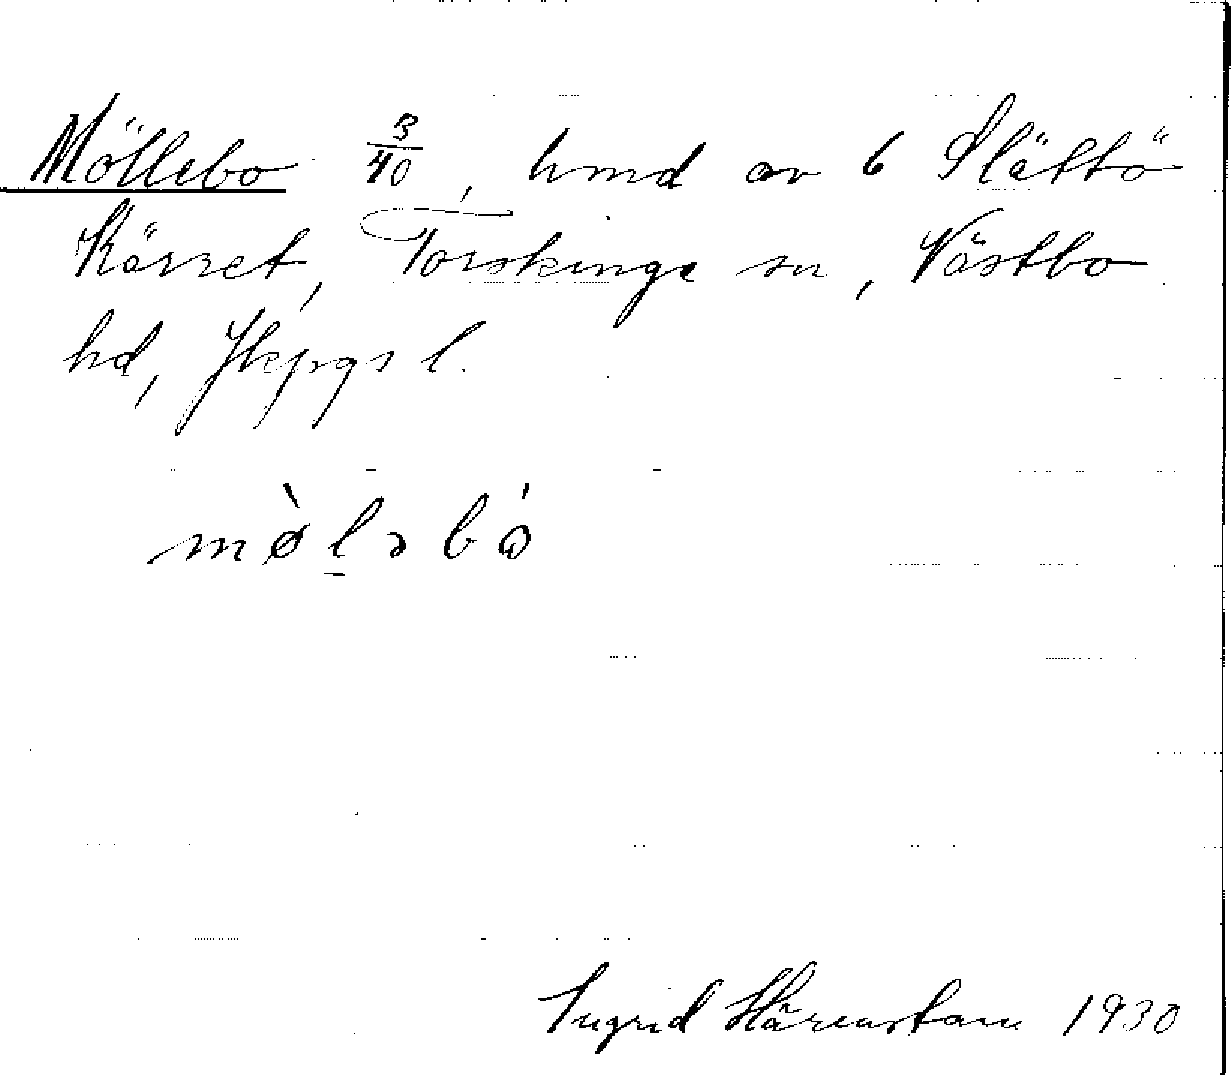 Möllebo 3/40, hmd av 6 Slättö
Kärret, Torskinge sn, Västbo
hd, Jkpgs l.
mø̀ləbó
Ingrid Härenstam 1930